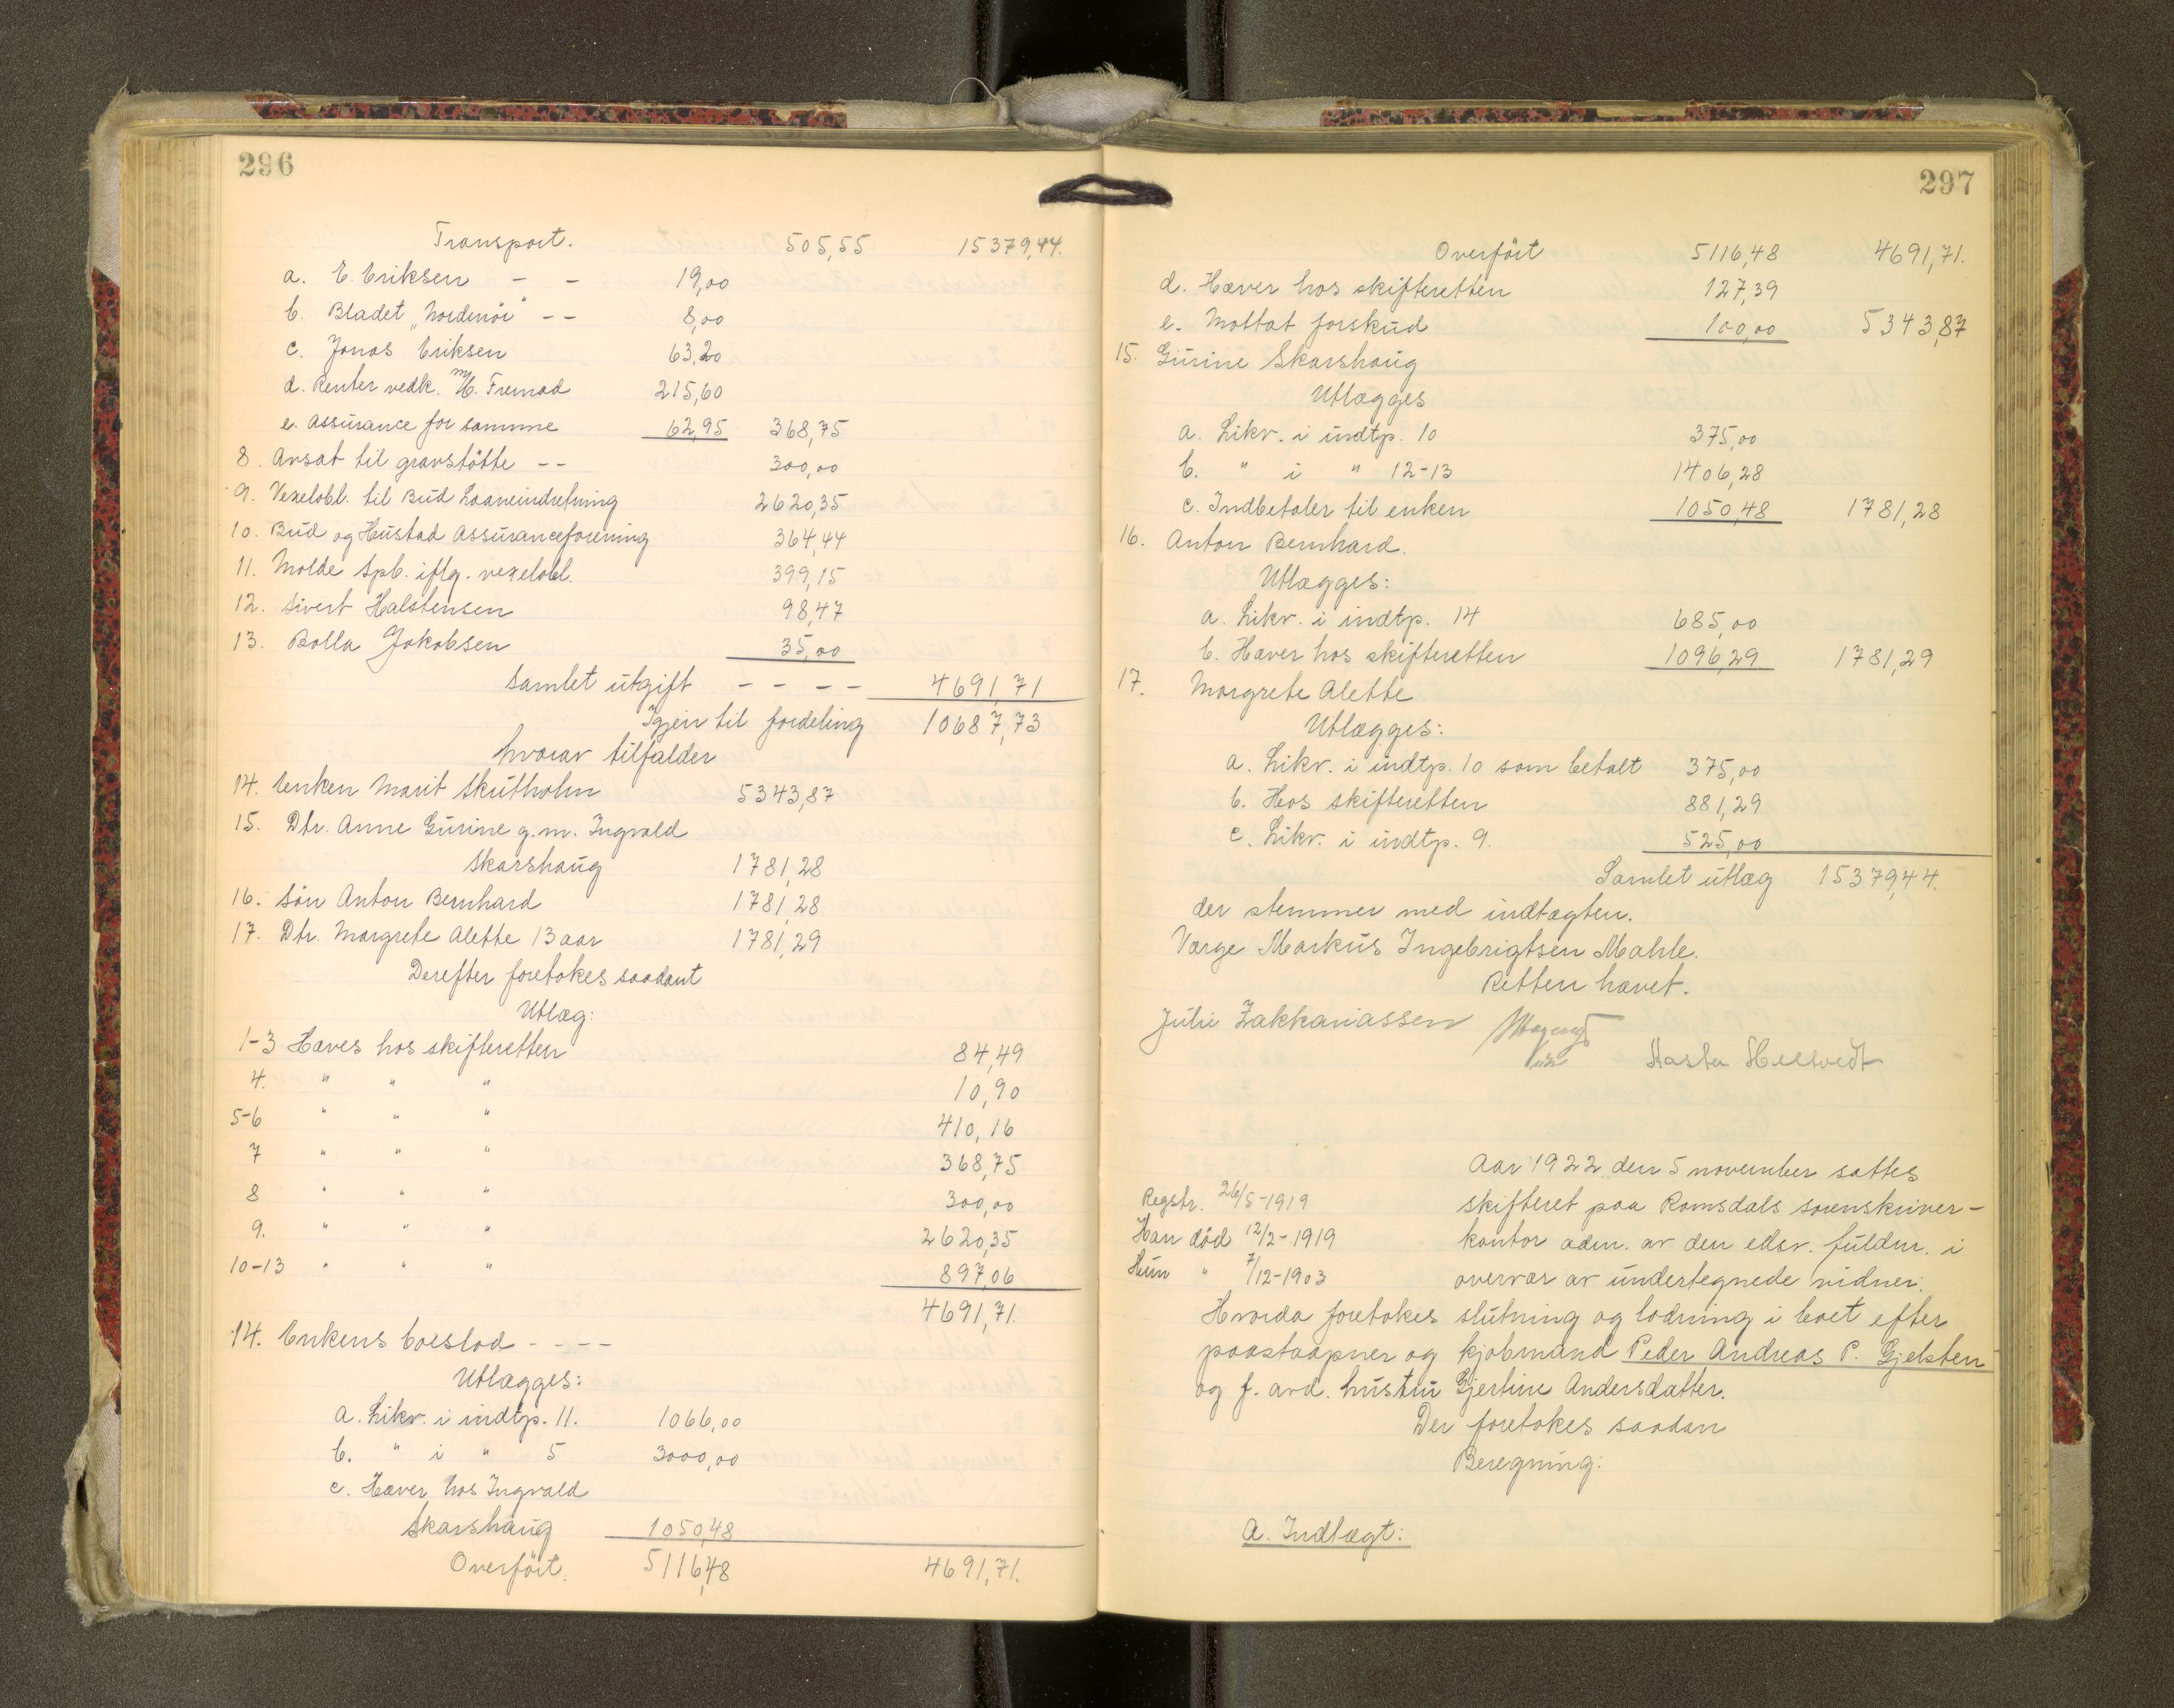 296
Transport. 505,55 15379,44.
a. E. Eriksen – – 19,00
b. Bladet „Nordmör" – – 8,00
c. Jonas Eriksen 63,20
d. Renter vedk. M/K. Fremad 215,60
e. Assurance for samme 62,95 368,75
8. Avsat til gravstötte – – 300,00
9. Vexelobl. til Bud Laaneindretning 2620,35
10. Bud og Hustad Assuranceforening 364,44
11. Molde Spb. iflg. vexelobl. 399,15
12. Sivert Halstensen 98,47
13. Bolla Jakobsen 35,00
Samlet utgift – – – – 4691,71
Igjen til fordeling 10687,73
hvorav tilfalder
14. Enken Marit Skutholm 5343,87
15. Dtr. Anne Gurine g.m. Ingvald
Skarshaug 1781,28
16. Sön Anton Bernhard 1781,28
17. Dtr. Margrete Alette 13 aar 1781,29
Derefter foretokes saadant
Utlæg:
1-3 Hæves hos skifteretten 84,49
4. " " " 10,90
5-6 " " " 410,16
7 " " " 368,75
8 " " " 300,00
9. " " " 2620,35
10-13 " " " 897,06
4691,71.
14. Enkens boeslod – – – –
Utlægges:
a. Likv. i indtp. 11. 1066,00
b. " i " 5 3000,00
c. Hæver hos Ingvald
Skarshaug 1050,48
Overfört. 5116,48 4691,71.
297
Overfört 5116,48 4691,71.
d. Hæver hos skifteretten 127,39
e. Mottat forskud 100,00 5343,87
15. Gurine Skarshaug
Utlægges
a. Likv. i indtp. 10 375,00
b. " i " 12-13 1406,28
c. Indbetaler til enken 1050,48 1781,28
16. Anton Bernhard.
Utlægges:
a. Likv. i indtp. 14 685,00
b. Hæver hos skifteretten 1096,29 1781,29
17. Margrete Alette
Utlægges:
a. Likv. i indtp. 10 som betalt 375,00
b. Hos skifteretten 881,29
c. Likv. i indtp. 9. 525,00
Samlet utlæg 15379,44.
der stemmer med indtægten.
Værge Markus Ingebrigtsen Male.
Retten hævet.
Julie Zakkariassen
Aar 1922 den 5 november sattes
Regstr. 26/5-1919 skifteret paa Romsdals sorenskriver-
Han död 12/2-1919 kontor adm. av den edsv. fuldm. i
Hun " 7/12-1903 overvær av undertegnede vidner.
Hvorda foretokes slutning og lodning i boet efter
poståapner og kjöbmand Peder Andreas P. Gjelsten
og f. avd. hustru Gjertine Andersdatter.
Der foretokes saadan
Beregning:
A. Indtægt: